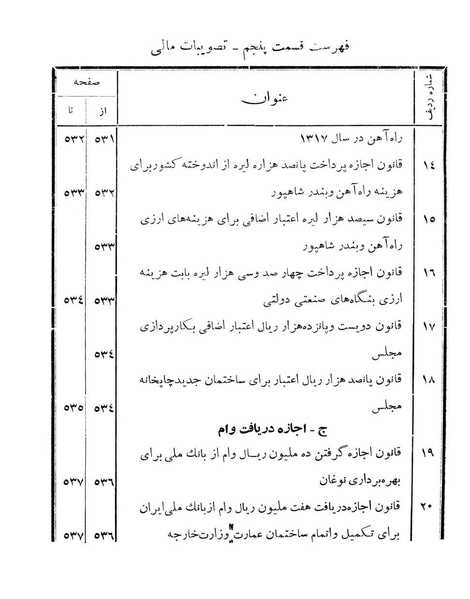 فهرست قسمت پنجم - تصویبات مالی
شماره ردیف عنوان صفحه
از تا
راه‌آهن در سال ۱۳۱۷ ۵۳۱ ۵۳۲
۱٤ قانون اجازه پرداخت پانصد هزاره لیره از اندوخته کشور برای
هزینه راه‌آهن وبندر شاهپور ۵۳۲ ۵۳۳
۱۵ قانون سیصد هزار لیره اعتبار اضافی برای هزینه‌های ارزی
راه‌آهن وبندر شاهپور ۵۳۳
۱۶ قانون اجازه پرداخت چهار صد وسی هزار لیره بابت هزینه
ارزی بنگاه‌های صنعتی دولتی ۵۳۳ ۵۳٤
۱۷ قانون دویست وپانزده‌هزار ریال اعتبار اضافی بکارپردازی
مجلس ۵۳٤
۱۸ قانون پانصد هزار ریال اعتبار برای ساختمان جدیدچاپخانه
مجلس ۵۳٤ ۵۳۵
ج - اجازه دریافت وام
۱۹ قانون اجازه گرفتن ده ملیون ریال وام از بانك ملی برای
بهره‌برداری نوغان ۵۳۶ ۵۳۷
۲۰ قانون اجازه‌دریافت هفت ملیون ریال وام ازبانك ملی‌ایران
برای تکمیل واتمام ساختمان عمارت وزارت‌خارجه ۵۳۶ ۵۳۷